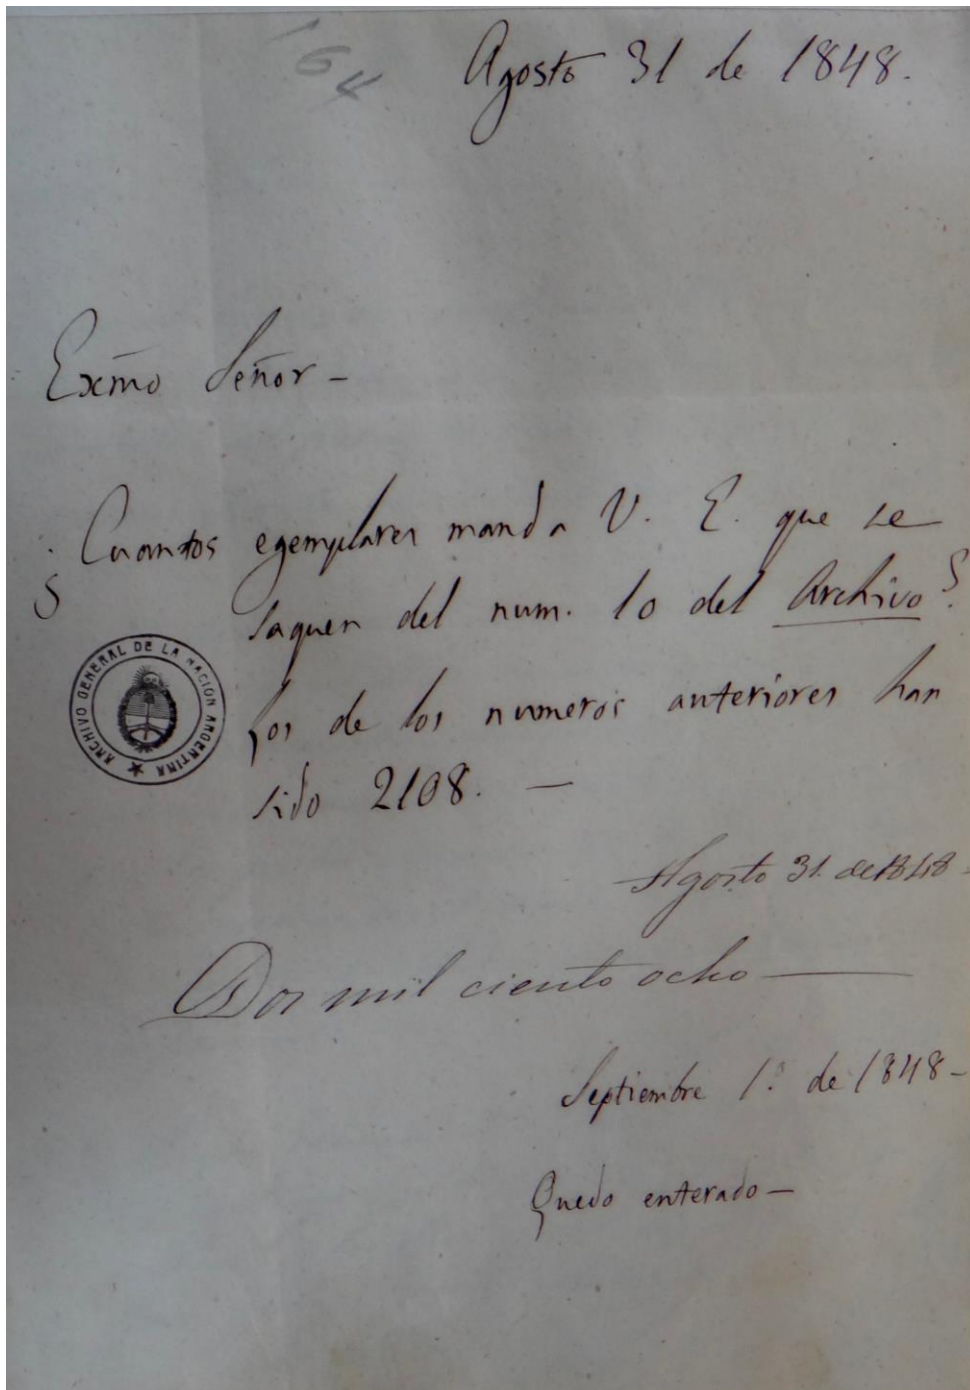 164
Agosto 31 de 1848.
Exm̄o Señor -
¿Cuantos egemplares manda V. E. que se
saquen del num. 10 del Archivo?
Los de los numeros anteriores han
sido 2108. —
ARCHIVO GENERAL DE LA NACIÓN ARGENTINA
Agosto 31. de 1848-
Dos mil ciento ocho —
Septiembre 1.º de 1848-
Quedo enterado -